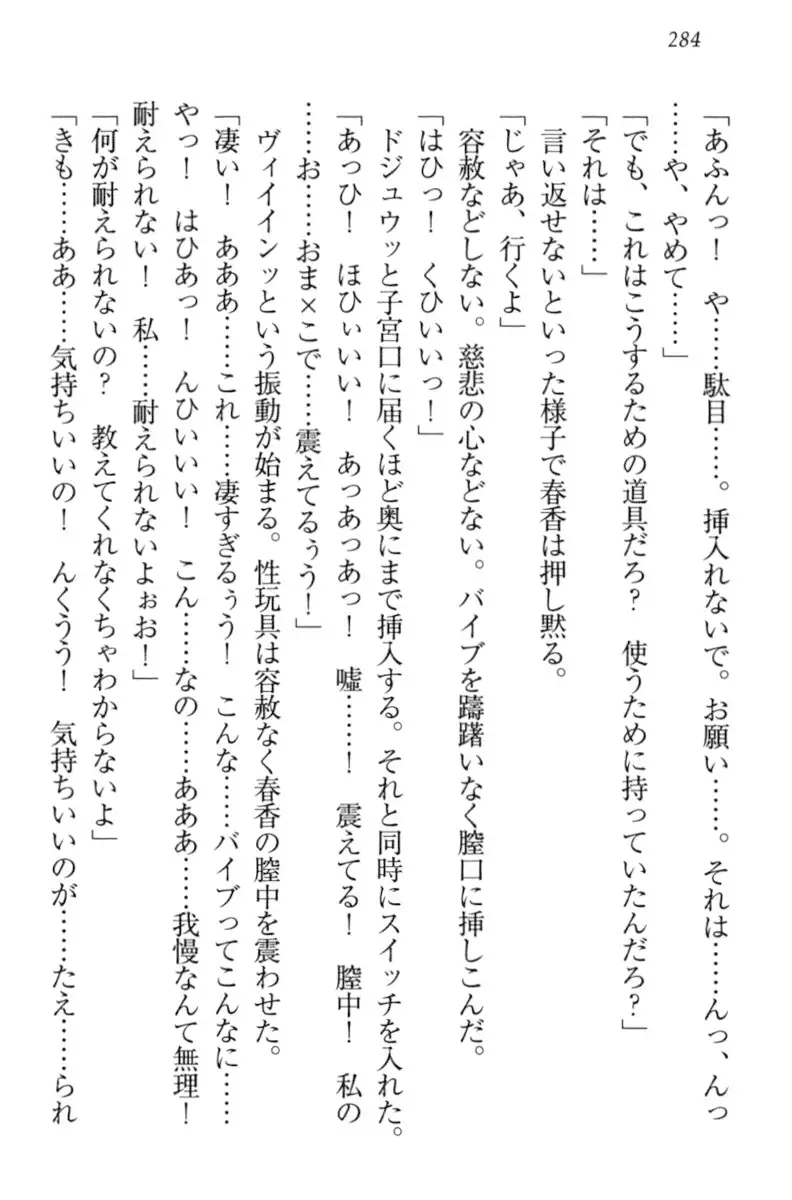 284
「あふんっ！　や……駄目……。挿入れないで。お願い……。それは……んっ、んっ
……や、やめて……」
「でも、これはこうするための道具だろ？　使うために持っていたんだろ？」
「それは……」
言い返せないといった様子で春香は押し黙る。
「じゃあ、行くよ」
容赦などしない。慈悲の心などない。バイブを躊躇いなく膣口に挿しこんだ。
「はひっ！　くひいいっ！」
ドジュウッと子宮口に届くほど奥にまで挿入する。それと同時にスイッチを入れた。
「あっひ！　ほひぃいい！　あっあっあっ！　嘘……！　震えてる！　膣中！　私の
……お……おま×こで……震えてるぅう！」
ヴィイインッという振動が始まる。性玩具は容赦なく春香の膣中を震わせた。
「凄い！　あああ……これ……凄すぎるぅう！　こんな……バイブってこんなに……
やっ！　はひあっ！　んひいいい！　こん……なの……あああ……我慢なんて無理！
耐えられない！　私……耐えられないよぉお！」
「何が耐えられないの？　教えてくれなくちゃわからないよ」
「きも……ああ……気持ちいいの！　んくうう！　気持ちいいのが……たえ……られ